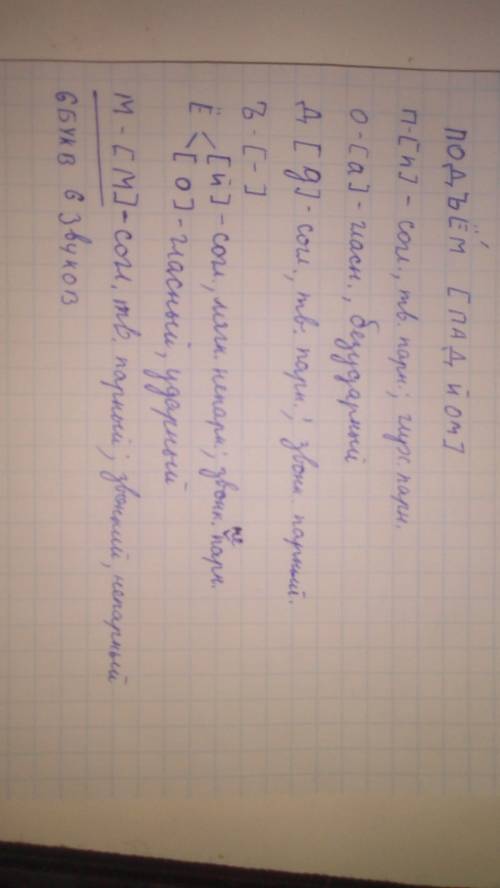 ПОДЪЁМ [ПАД Й ОМ]
П-[п] - согл., тв. парн.; глух. парн.
О-[а] - гласн., безударный
Д [д] - согл., тв. парн.; звонк. парный.
Ъ - [-]
Ё < [й] - согл., мягк. непарн; звонк. непарн.
[о] - гласный, ударный
М - [М] - согл., тв. парный; звонкий, непарный
6 БУКВ 6 Звуков